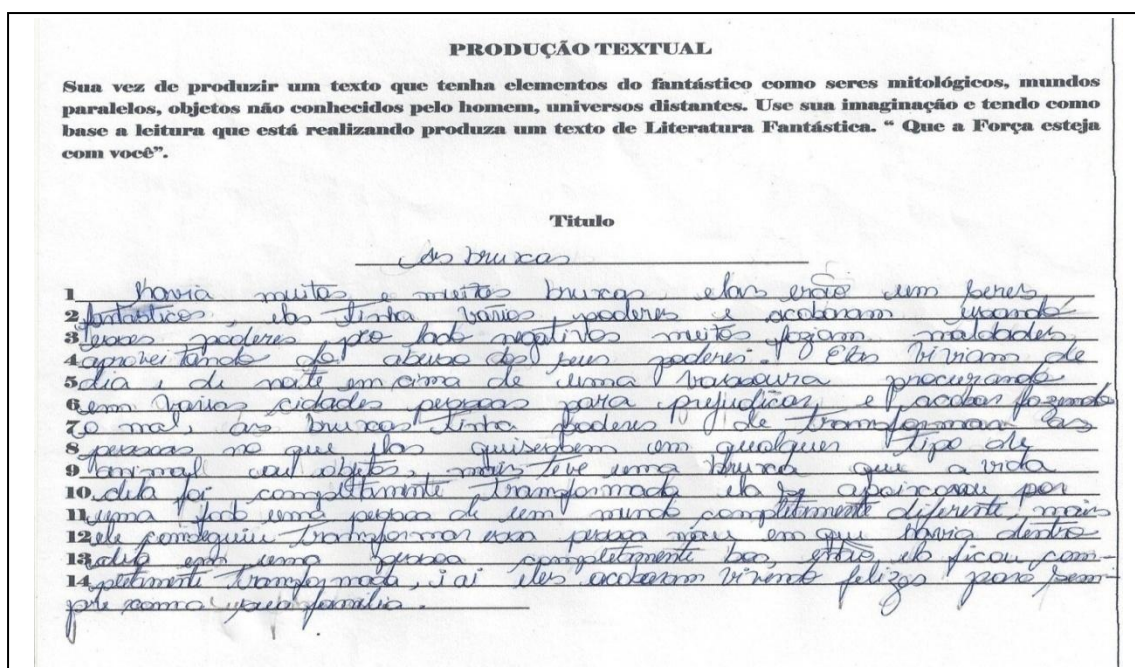 PRODUÇÃO TEXTUAL
Sua vez de produzir um texto que tenha elementos do fantástico como seres mitológicos, mundos
paralelos, objetos não conhecidos pelo homem, universos distantes. Use sua imaginação e tendo como
base a leitura que está realizando produza um texto de Literatura Fantástica. “ Que a Força esteja
com você”.
Titulo
As bruxas
1 havia muitas e muitas bruxas, elas erão um seres
2 fantásticos, elas tinha vários poderes e acabaram usando
3 esses poderes pro lado negativos muitos faziam maldades,
4 aproveitando do abuso dos seus poderes. Elas viviam de
5 dia e de noite em cima de uma vassoura procurando
6 em varias cidades pessoas para prejudicar, e acabar fazendo
7 o mal, as bruxas tinha poderes de transformar as
8 pessoas no que elas quisessem em qualquer tipo de
9 animal ou objetos, mais teve uma bruxa que a vida
10 dela foi completamente transformada ela se apaixonou por
11 uma uma pessoa de um mundo completamente diferente, mais
12 ele conseguiu transformar essa pessoa em que havia dentro
13 dela em uma pessoa completamente boa, então ela ficou com-
14 pletamente transformada, i ai eles acabaram vivendo felizes para sem-
pre família.